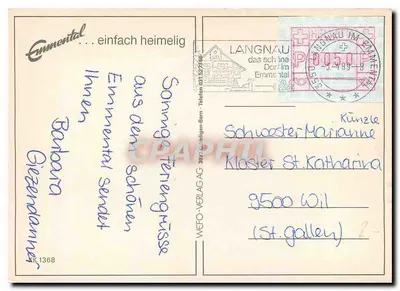 Emmental
... einfach heimelig
Sonnige Feriengrüsse
aus dem schönen
Emmental sendet
Ihnen
Barbara
Giezendanner
1368
WEPO-VERLAG AG
LANGNAU
das schöne
Dorf im
Emmental
3550 LANGNAU IM EMMENTAL
0050
Künzle
Schwester Marianne
Kloster St. Katharina
9500 Wil
(St. gallen)
CPHARTI